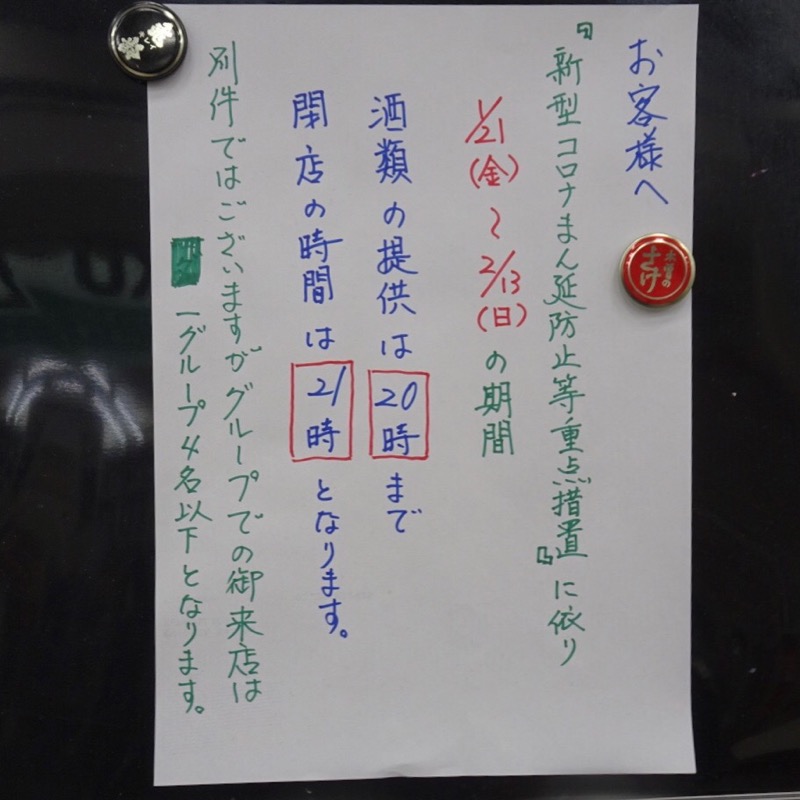 お客様へ
『新型コロナまん延防止等重点措置』に依り
1/21(金)~2/13(日)の期間
酒類の提供は20時まで
閉店の時間は21時となります。
別件ではございますがグループでの御来店は
一グループ4名以下となります。
木曽のさけ